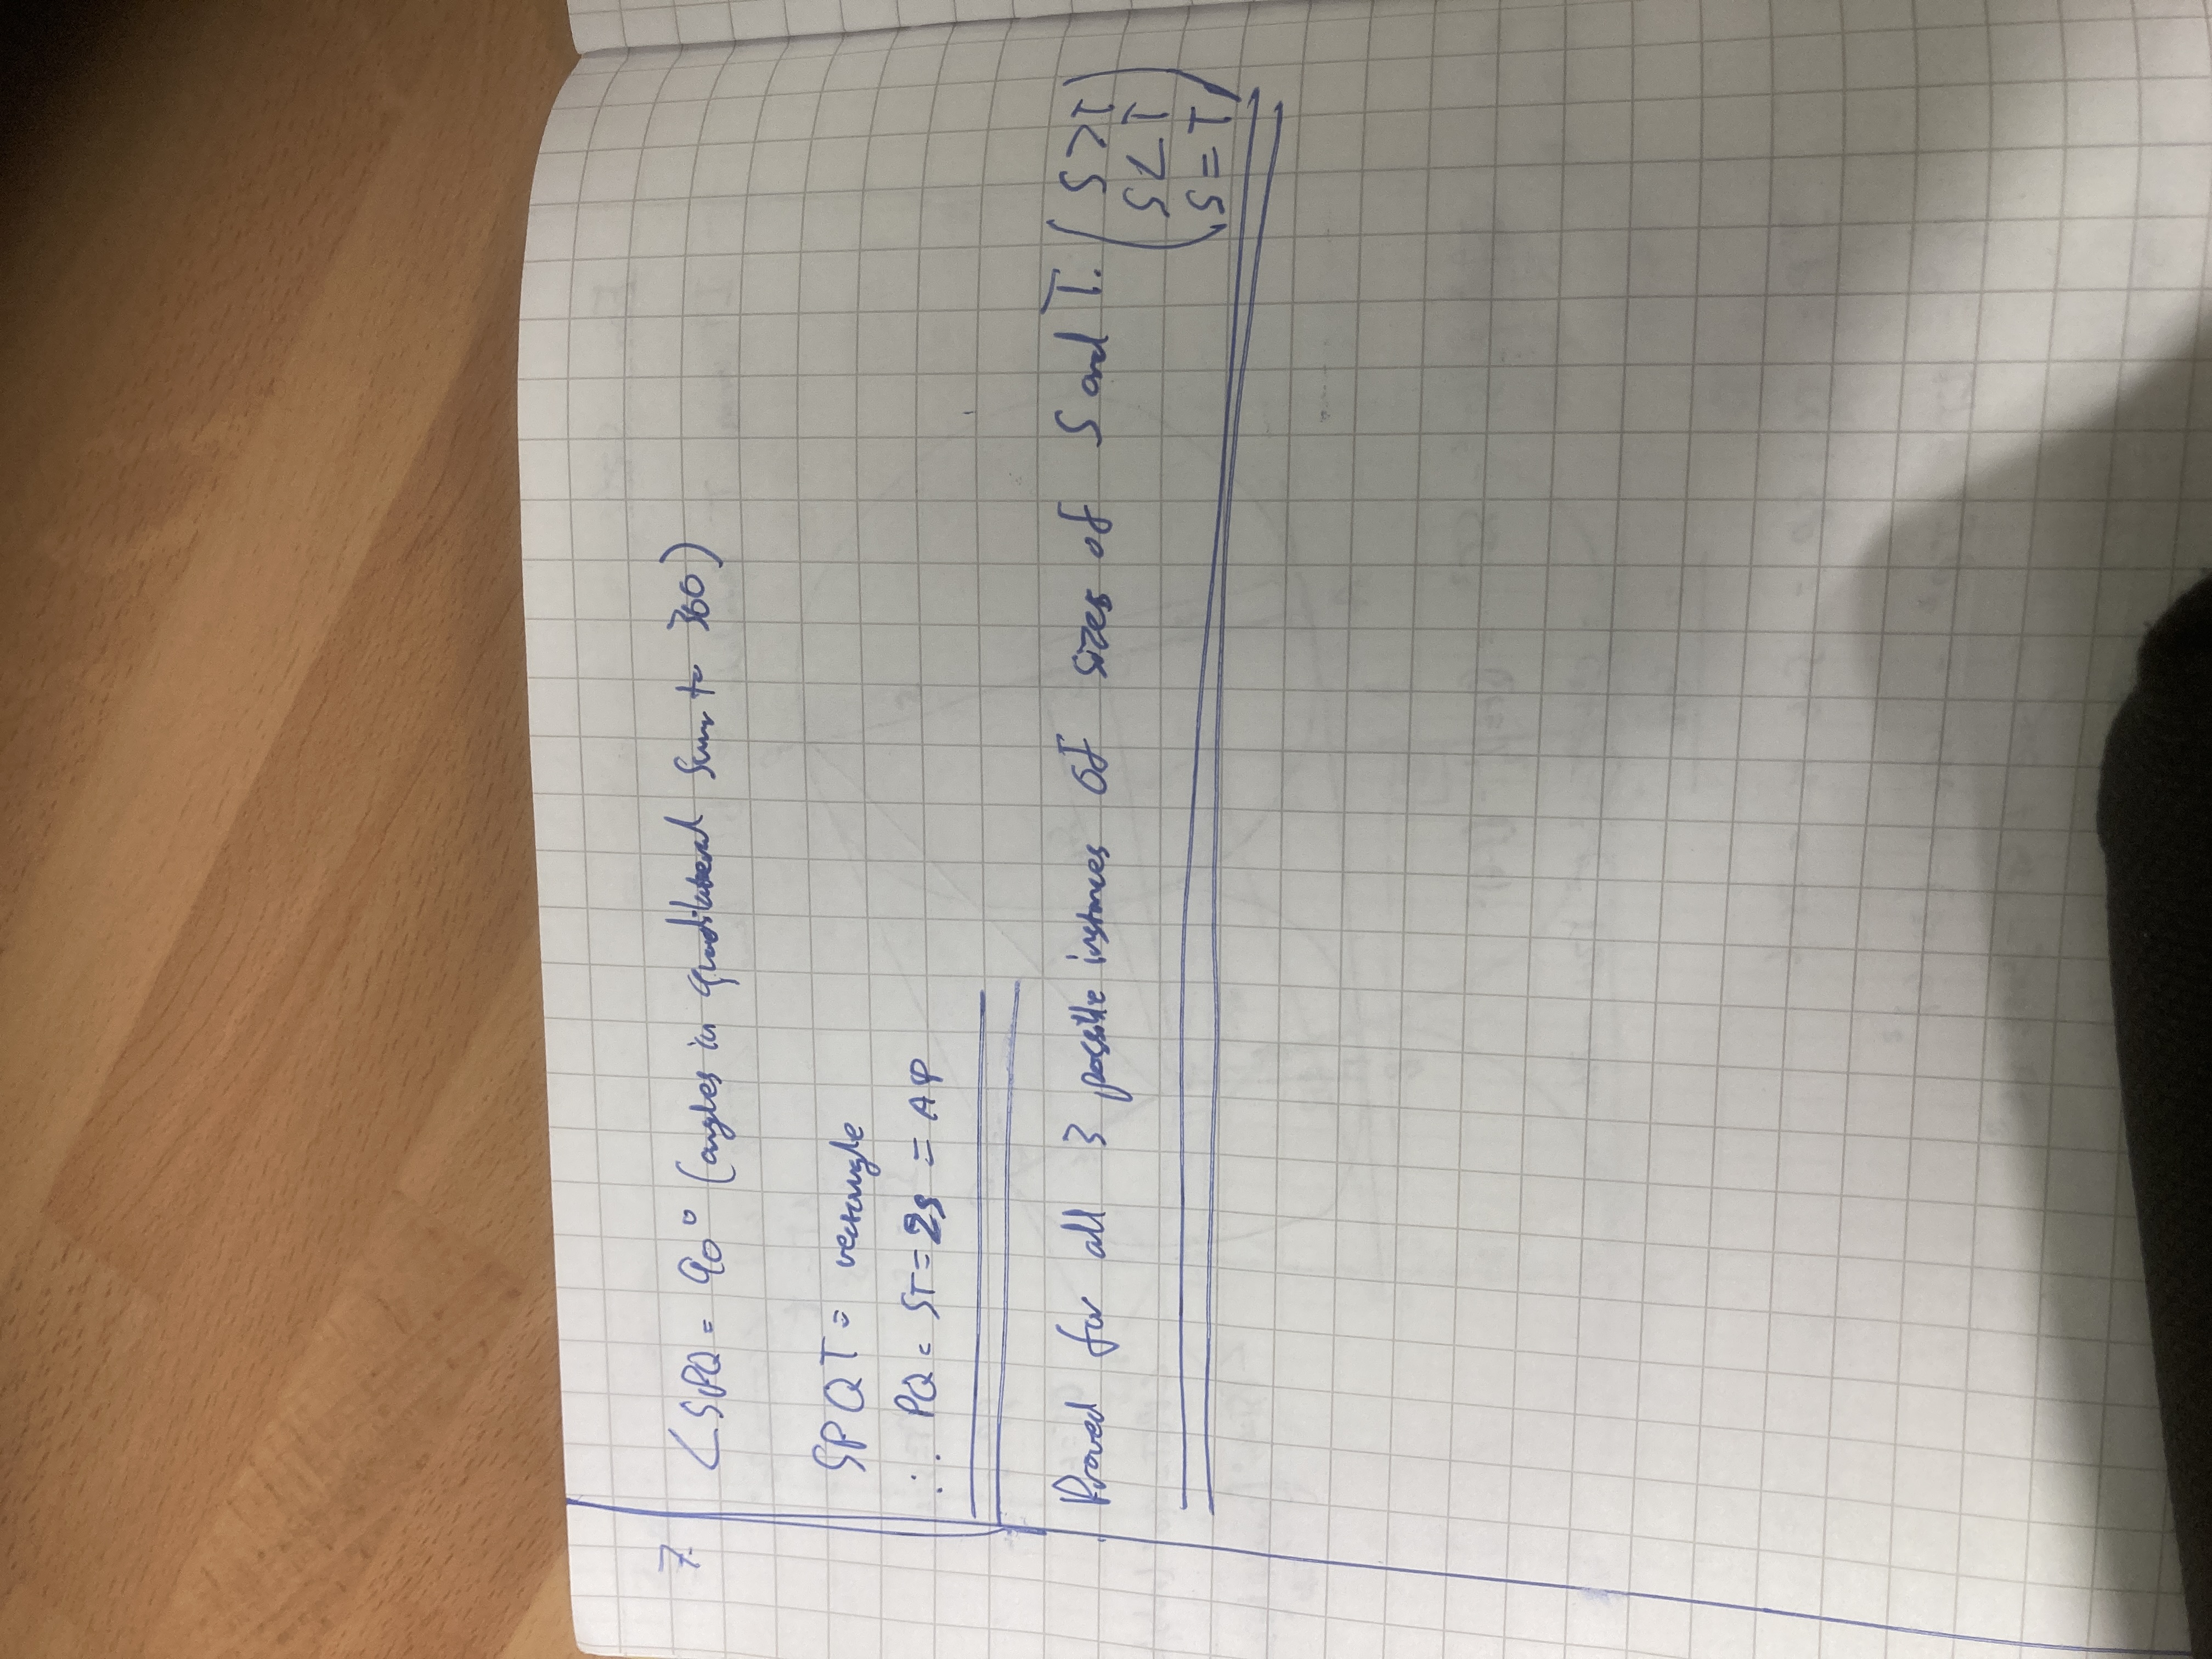 7.
∠SPQ = 90° (angles in quadilateral sum to 360)
SPQT = rectangle
∴ PQ = ST = 2s = AP
Proved for all 3 possible instances of sizes of S and T. (S>T
S<T
S=T)